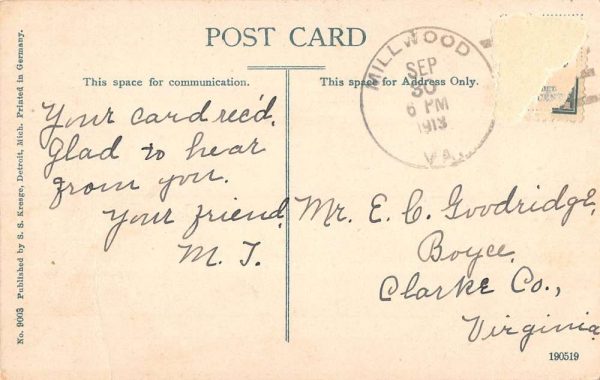 POST CARD
This space for communication.
This space for Address Only.
MILLWOOD
SEP
30
6 PM
1913
VA.
Your card rec'd.
Glad to hear
from you.
Your friend,
M. T.
Mr. E. C. Goodridge,
Boyce,
Clarke Co.,
Virginia
No. 9003 Published by S. S. Kresge, Detroit, Mich. Printed in Germany.
190519